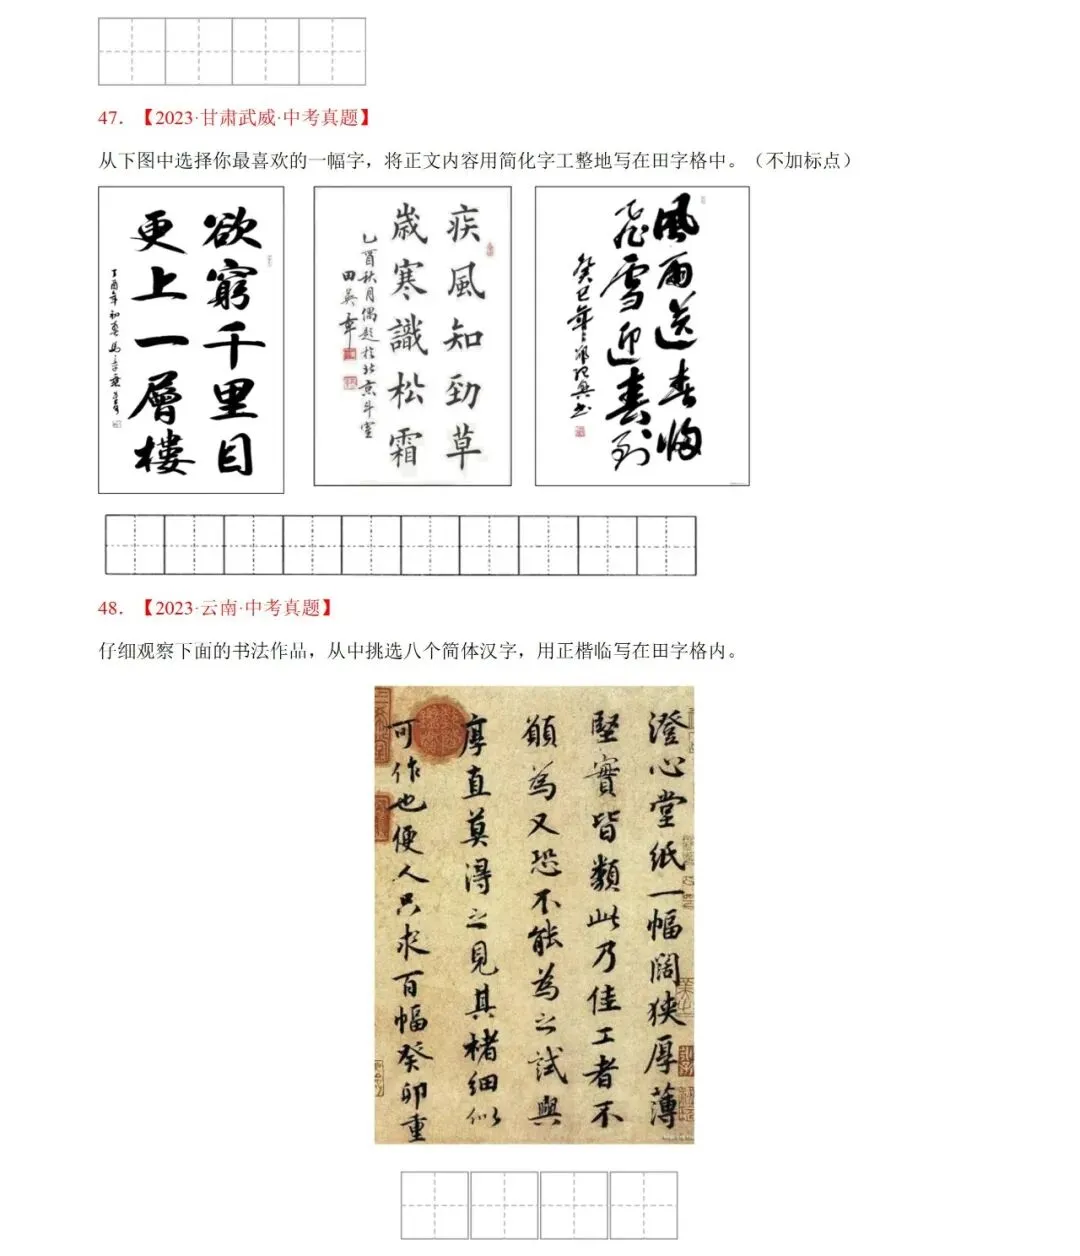 47. 【2023·甘肃武威·中考真题】
从下图中选择你最喜欢的一幅字，将正文内容用简化字工整地写在田字格中。（不加标点）
欲窮千里目
更上一層樓
疾風知勁草
歲寒識松霜
乙酉秋月偶题於北京斗室
田英章
風雨送春歸
飛雪迎春到
48. 【2023·云南·中考真题】
仔细观察下面的书法作品，从中挑选八个简体汉字，用正楷临写在田字格内。
澄心堂紙一幅闊狹厚薄
堅實皆類此乃佳工者不
願為又恐不能為之試與
厚直莫得之見其楮細似
可作也便人只求百幅癸卯重